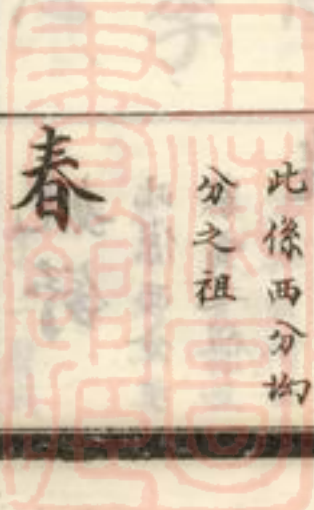 此係西分坳
分之祖
春